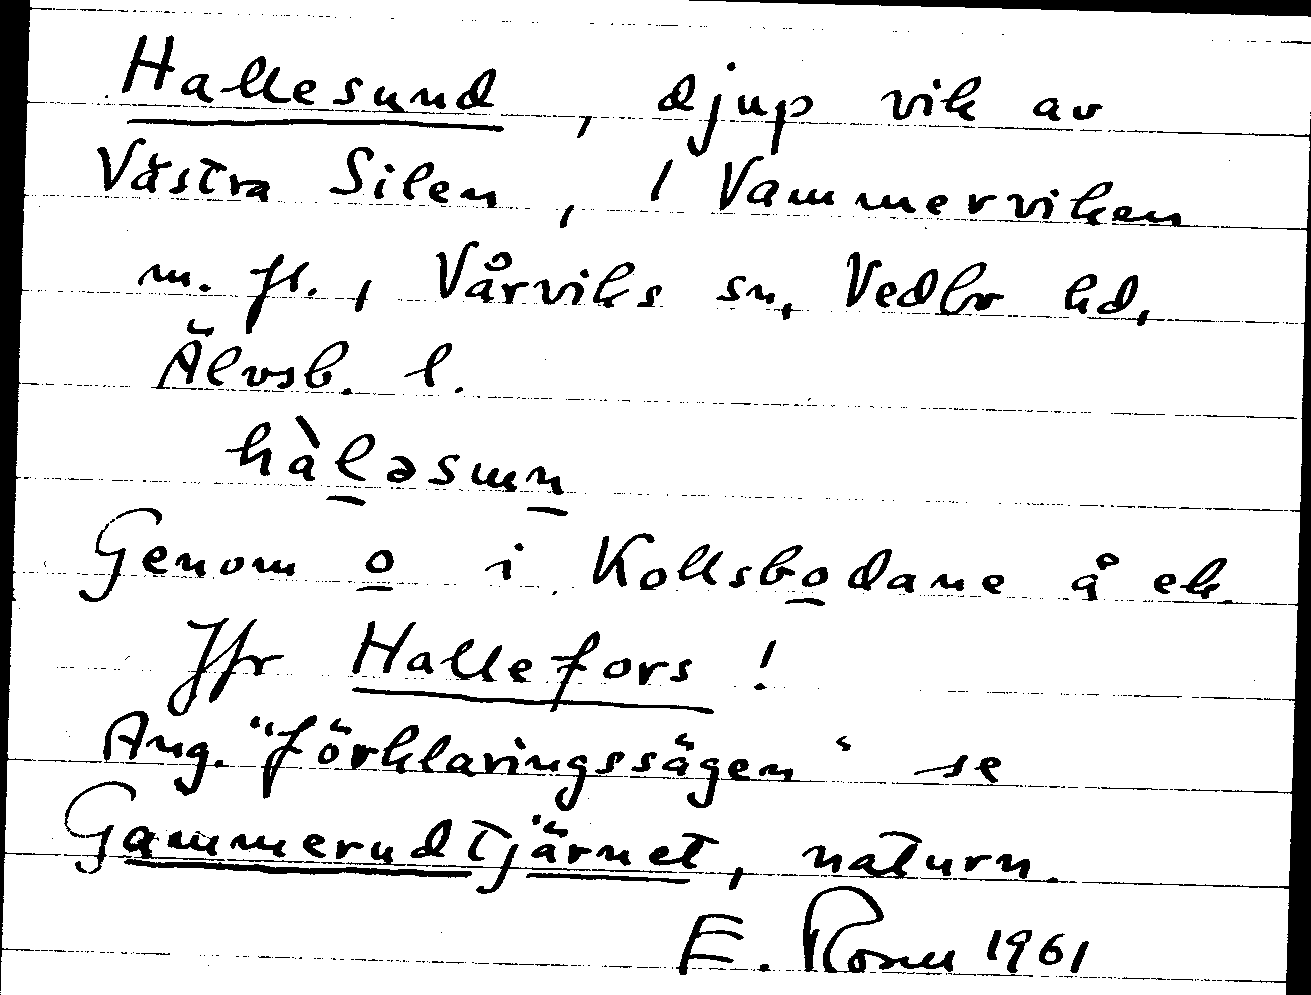 Hallesund, djup vik av
Västra Silen, / Vammerviken
m. fl., Vårviks sn, Vedbo hd,
Älvsb. l.
hàl̠əsmn̠
Genom o̠ i Kollsbo̠dane å ek.
Jfr Hallefors!
Ang. "förklaringssägen" se
Gammerudtjärnet, naturn.
E. 1961